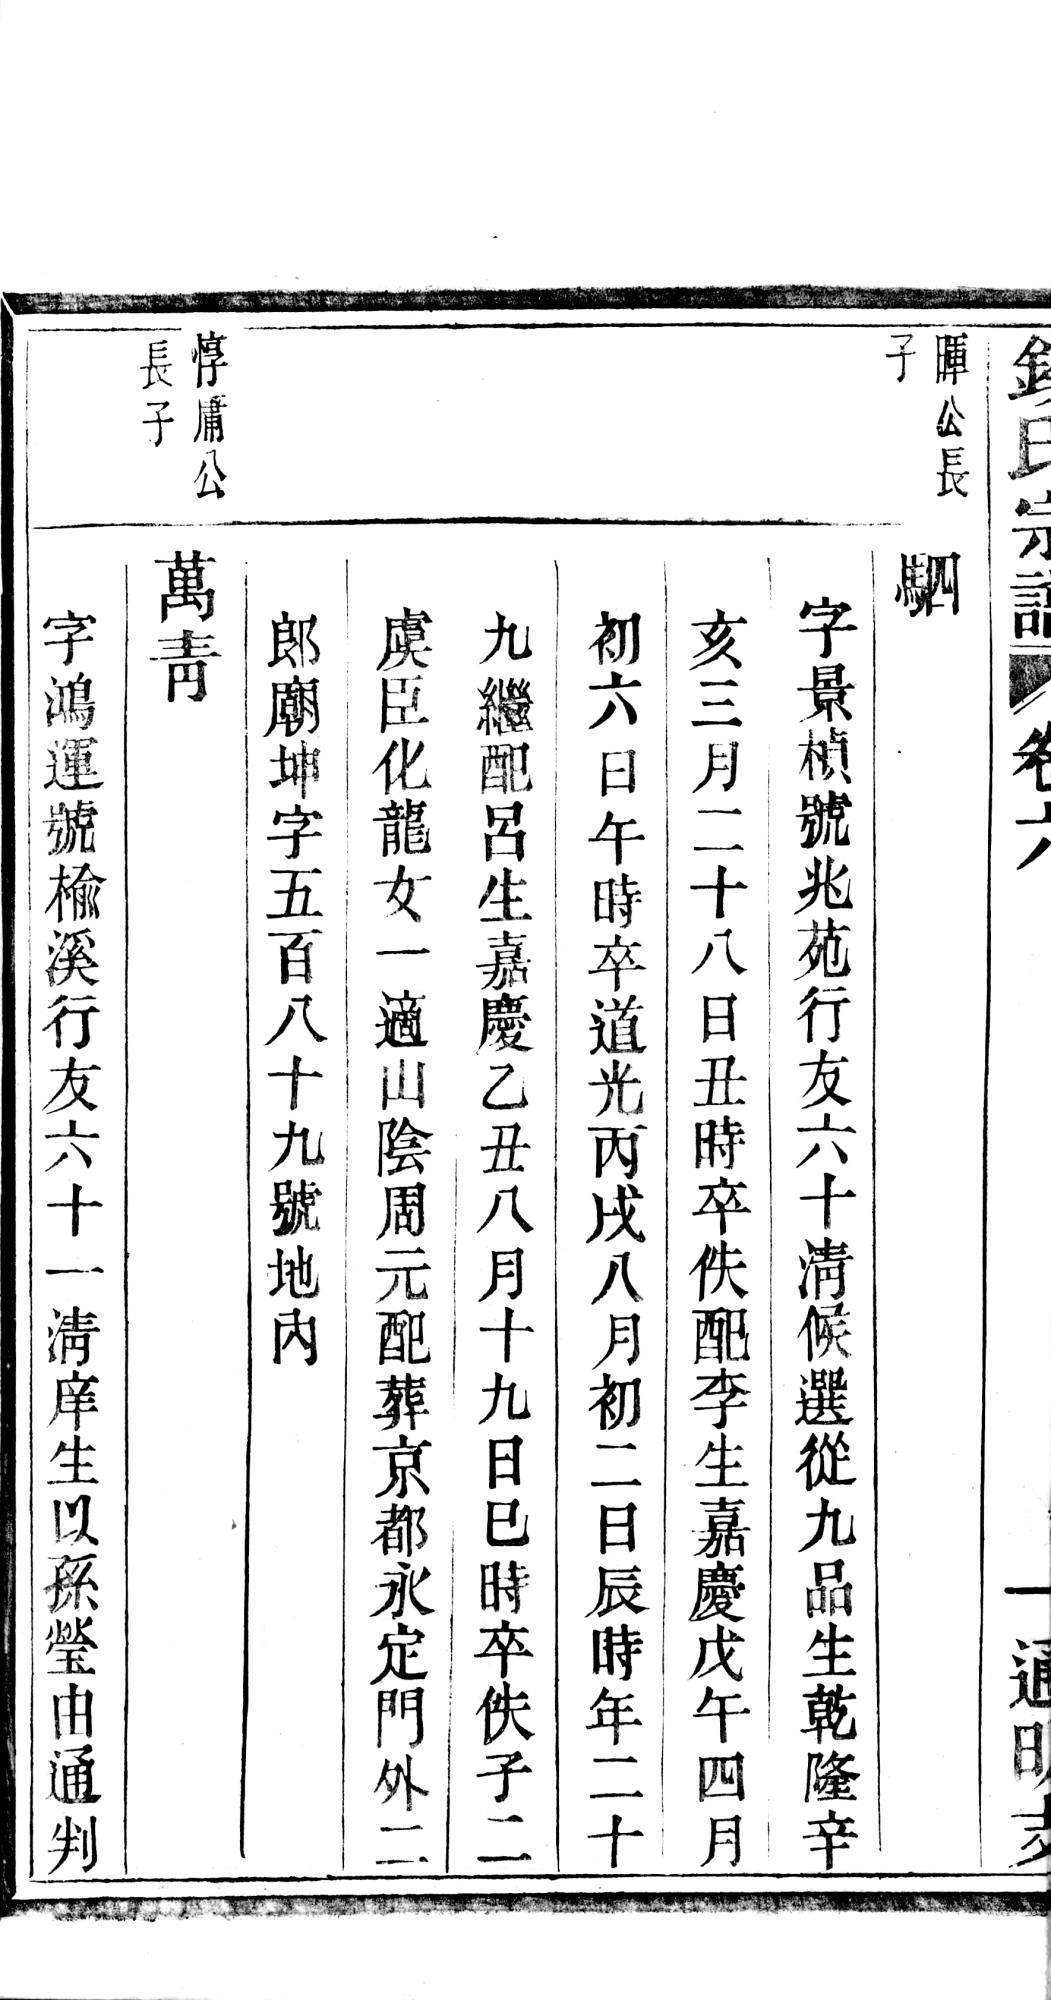 氏宗譜 卷六 一 通明
暉公長
子
駟
字景楨號兆苑行友六十淸候選從九品生乾隆辛
亥三月二十八日丑時卒佚配李生嘉慶戊午四月
初六日午時卒道光丙戌八月初二日辰時年二十
九繼配呂生嘉慶乙丑八月十九日巳時卒佚子二
虞臣化龍女一適山陰周元配葬京都永定門外二
郎廟坤字五百八十九號地內
惇庸公
長子
萬靑
字鴻運號榆溪行友六十一淸庠生以孫瑩由通判